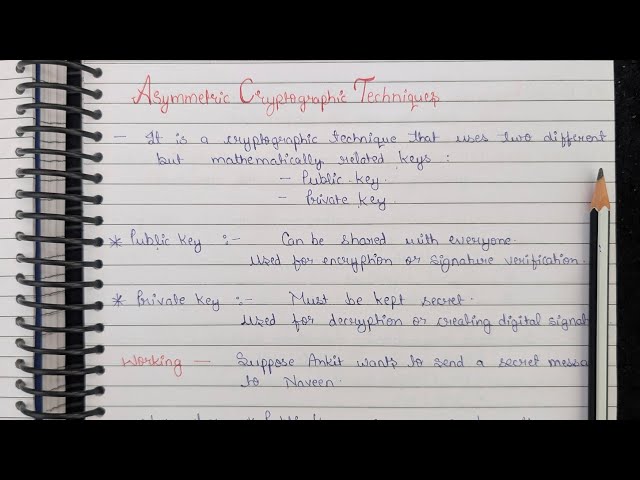 Asymmetric Cryptographic Techniques
- It is a cryptographic technique that uses two different
but mathematically related keys :
- Public key.
- Private key.
* Public key :- Can be shared with everyone.
Used for encryption or signature verification.
* Private key :- Must be kept secret.
Used for decryption or creating digital signat
Working - Suppose Ankit wants to send a secret messa
to Naveen.